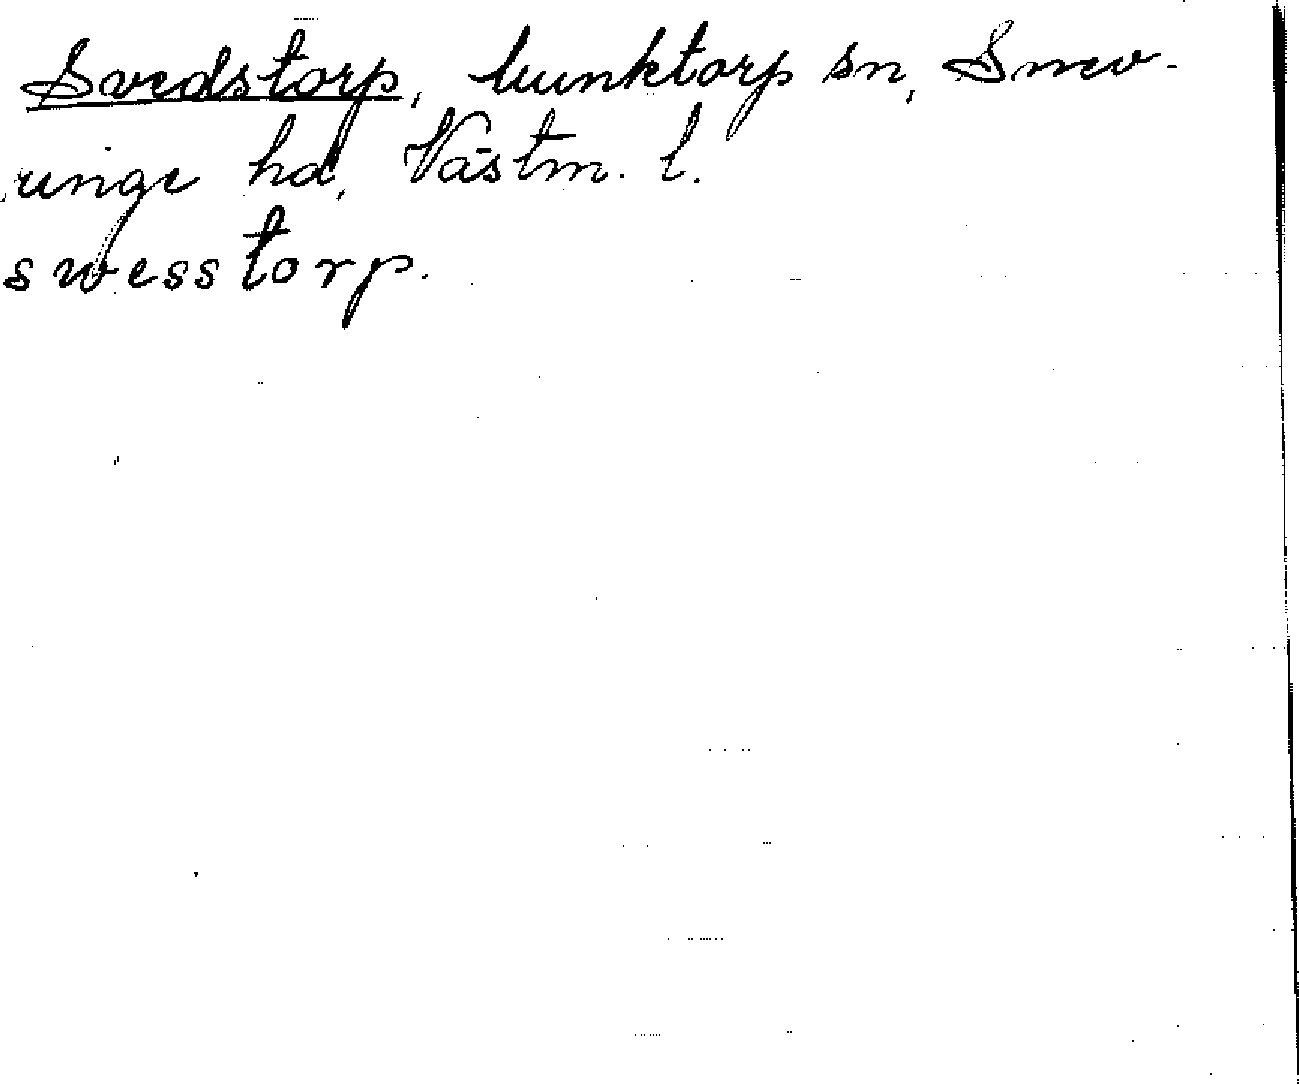 Svedstorp, Munktorp sn, Snev-
ringe hd, Västm. l.
swesstorp.